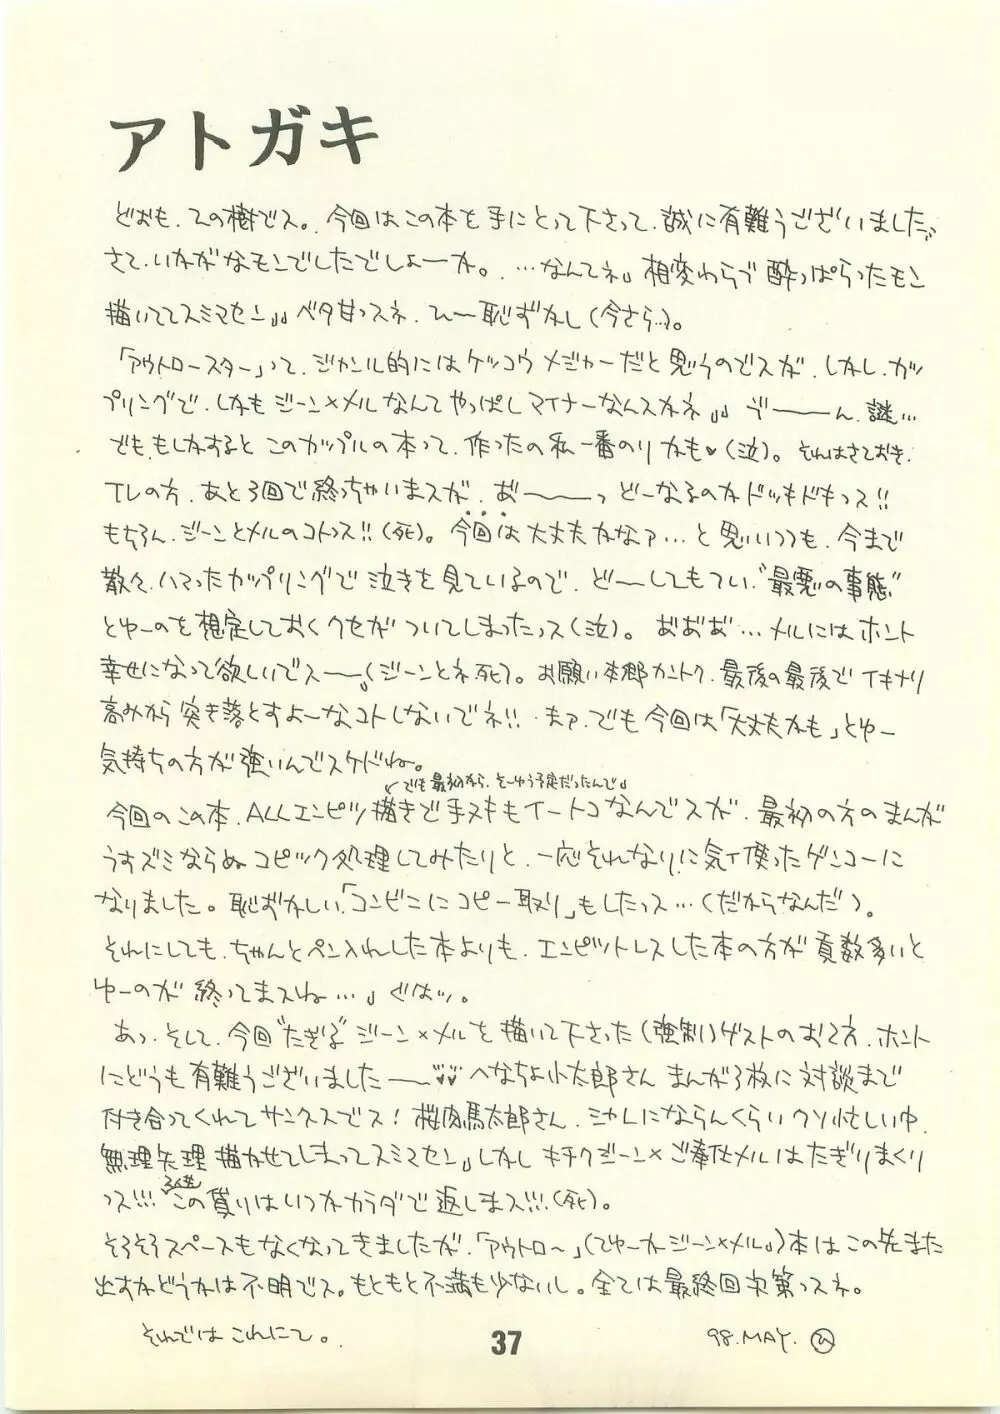 アトガキ
どおも、ひの樹でス。今回はこの本を手にとって下さって、誠に有難うございました。
さて、いかがなモンでしたでしょーか。…なんてネ。相変わらず酔っぱらったモン
描いててスミマセン。ベタ甘っスネ、ひ〜恥ずかし(今さら…)。
「アウトロースター」って、ジャンル的にはケッコウメジャーだと思うのでスが、しかし、カッ
プリングで、しかもジーン×メルなんてやっぱしマイナーなんスかネ。うーーーん、謎…
でも、もしかすると このカップルの本って、作ったの私一番のりかも♥(泣)。それはさておき、
TVの方、あと3回で終っちゃいまスが、お〜〜〜っ どーなるのかドッキドキっス!!
もちろん、ジーンとメルのコトっス!!(死)。今回は大丈夫かなァ…と思いつつも、今まで
散々、ハマったカップリングで泣きを見ているので、どーーしてもつい、"最悪の事態"
とゆーのを想定しておくクセがついてしまったっス(泣)。おおお…メルにはホント
幸せになって欲しいでスーー(ジーンとネ、死)。お願い本郷カントク、最後の最後でイキナリ
高みから突き落とすよーなコトしないでネ!! まァ、でも今回は「大丈夫かも」とゆー
気持ちの方が強いんでスケドね。
でも最初から、そーゆう予定だったんで
今回のこの本、ALLエンピツ描きで手ヌキもイートコなんでスが、最初の方のまんが
うすズミならぬコピック処理してみたりと、一応それなりに気イ使ったゲンコーに
なりました。恥ずかしい「コンビニにコピー取り」もしたっス…(だからなんだ)。
それにしても、ちゃんとペン入れした本よりも、エンピツトレスした本の方が頁数多いと
ゆーのが 終ってまスね…。ぐはッ。
あっ、そして、今回"たぎる"ジーン×メルを描いて下さった(強制)ゲストのお2方、ホント
にどうも有難うございましたーー♥♥ へなちょ小太郎さん まんが3枚に対談まで
付き合ってくれてサンクスでス! 桜肉馬太郎さん、ミカレにならんくらいクソ忙しい中、
無理矢理描かせてしまってスミマセン。しかし キチクジーン×ご奉仕メルはたぎりまくり
っス!!! この借りはいつかカラダで返しまス!!!(死)。
そろそろスペースもなくなってきましたが、「アウトロ〜」(てゆーかジーン×メル)本はこの先また
出すかどうかは不明でス。もともと不満も少ないし。全ては最終回次第っスネ。
それでは これにて。
37
98.MAY. ひ